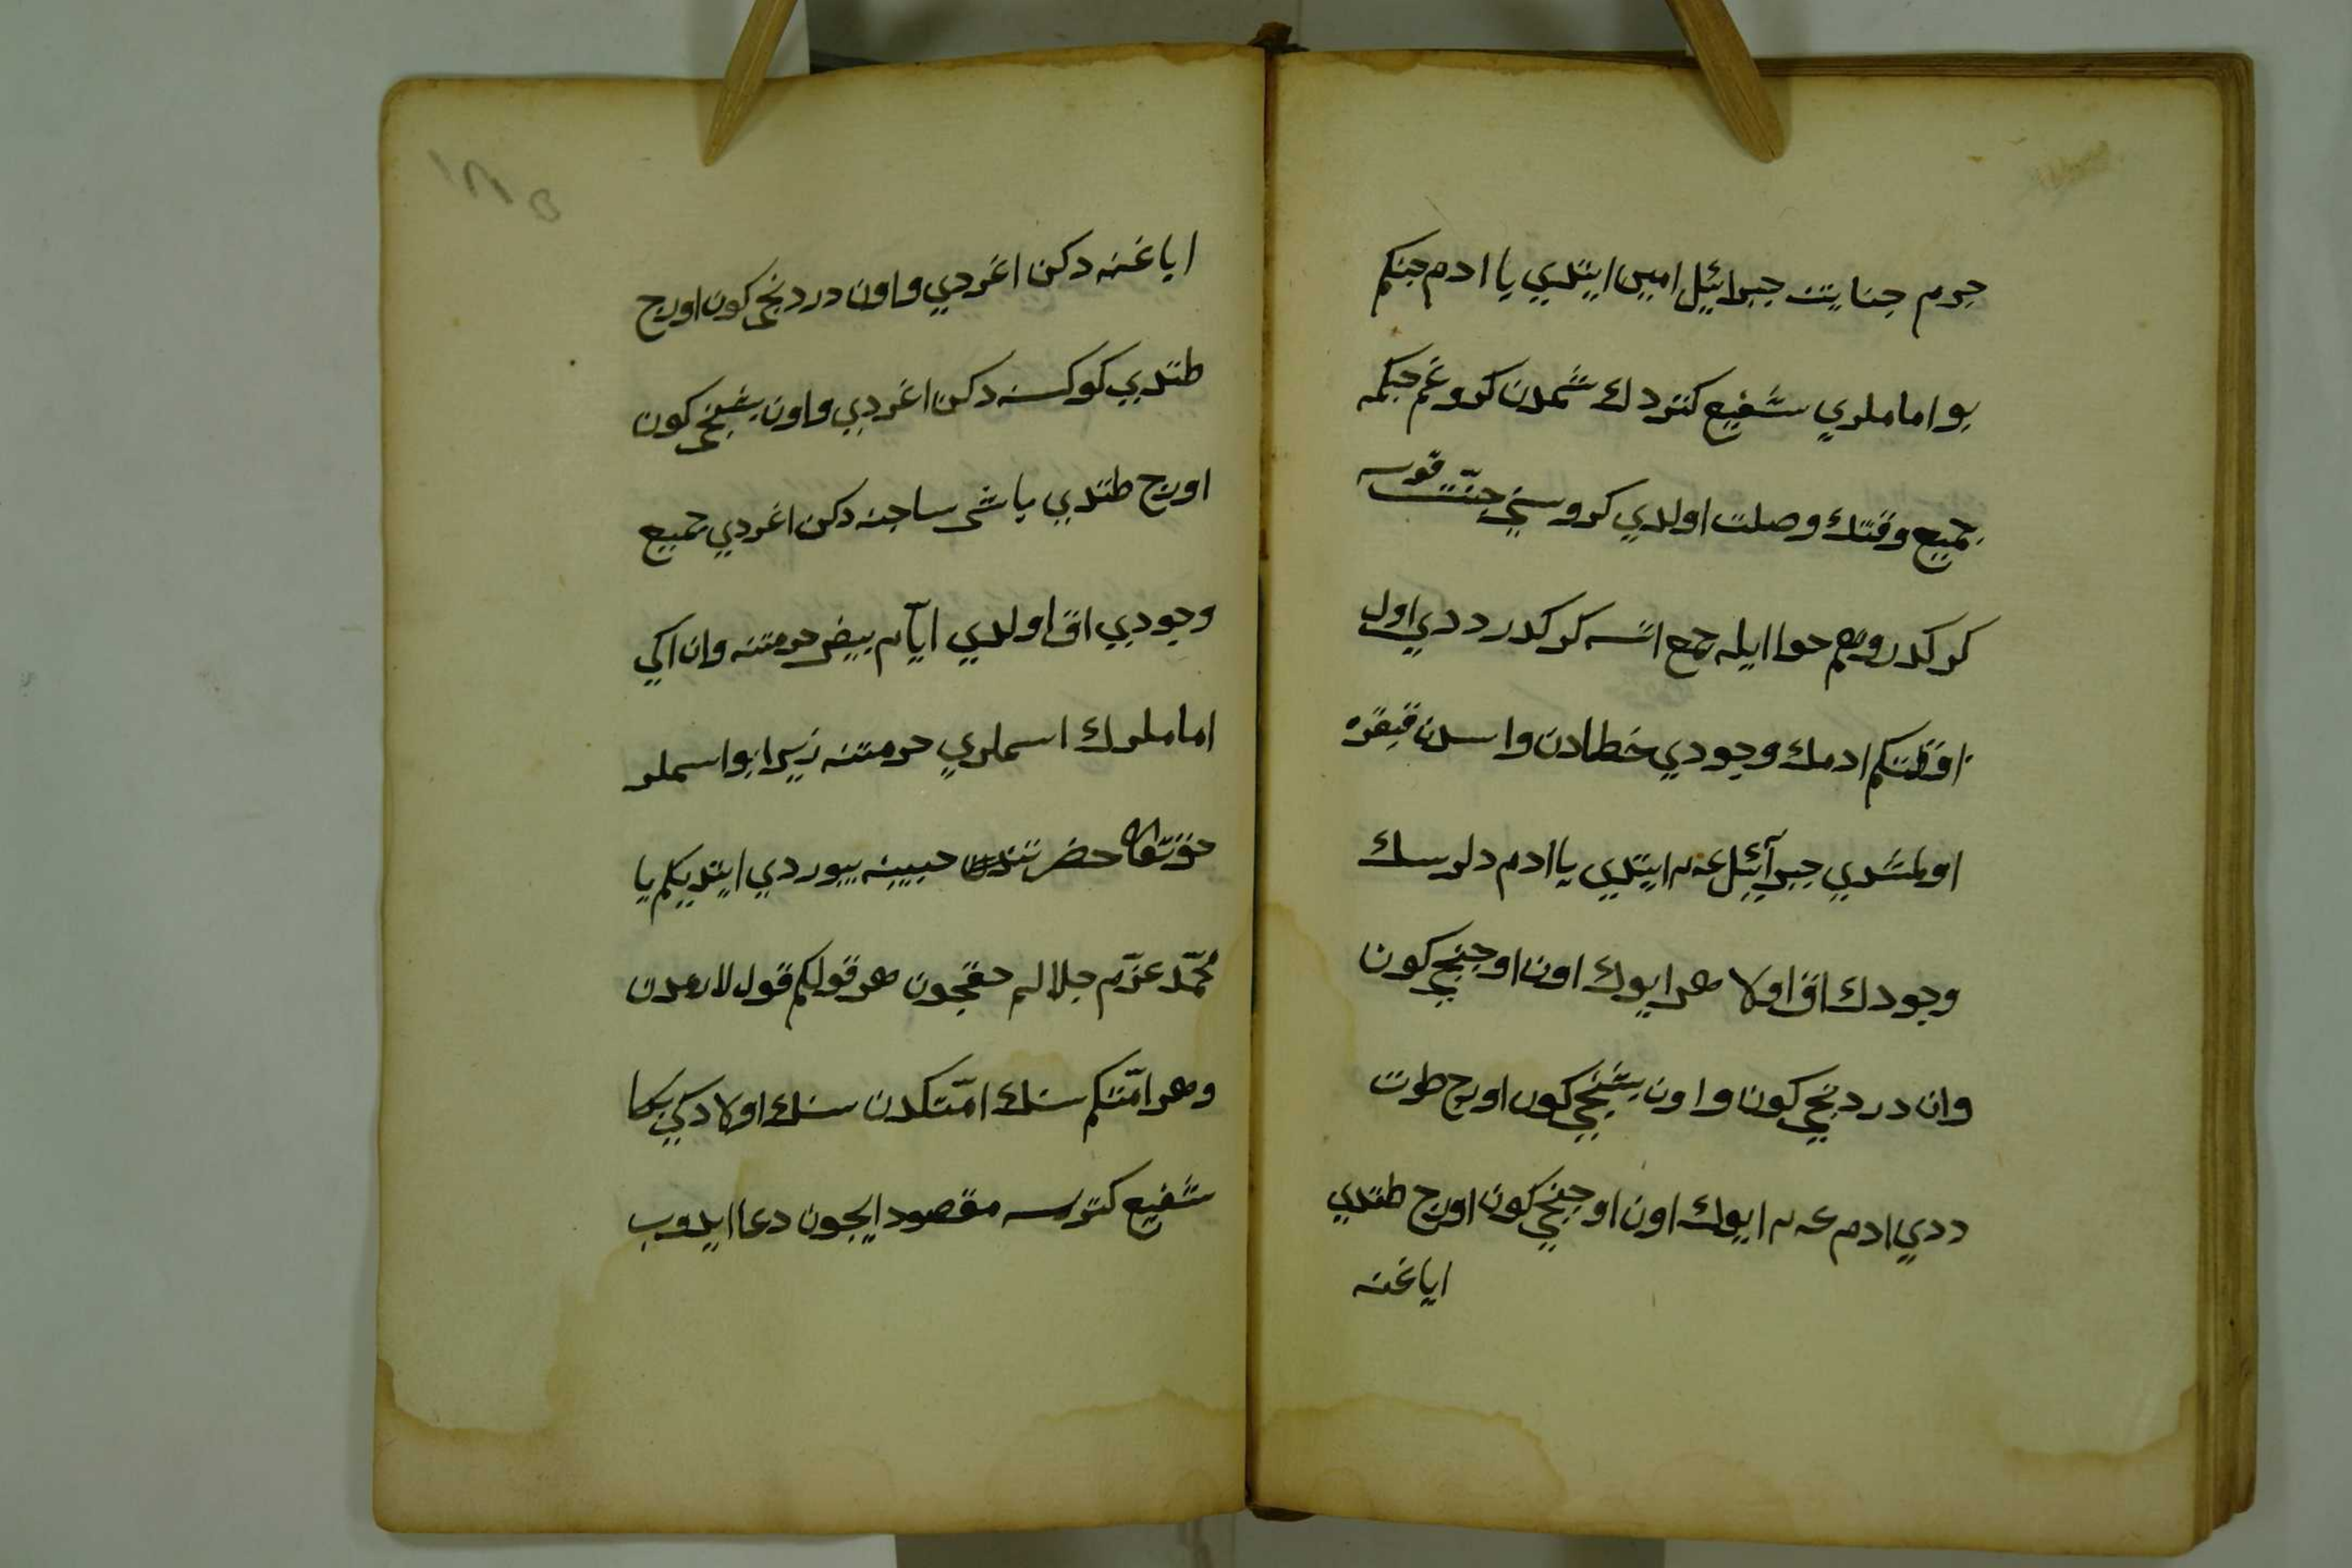 جرم جنايت جبرائيل امين ايتدي يا ادم جنكم
بو اماملري شفيع كتردك شمدن كرو غم جكمه
جميع وقتك وصلت اولدي كرو سني جنت قويسه
كر كدر وهم حوا ايله جمع اتسه كر كدر ددي اول
ادمك وجودي خطادن واسدن قبقره
اولمشدي جبرآئيل عم ايتدي يا ادم دلرسك
وجودك اق اولا هر ايوك اون اوجنجي كون
وان دردنجي كون واون بشنجي كون اورج طوت
ددي ادم عم ايوك اون اوجنجي كون اورج طتدي
اياغنه
اياغنه دكن اغردي واون دردنجي كون اورج
طتدي كوكسنه دكن اغردي واون بشنجي كون
اورج طتدي باشى ساجنه دكن اغردي جميع
وجودي اق اولدي ايام بيض حرمتنه وان اكي
اماملرك اسملري حرمتنه زيرا بو اسملر
حقتعالى حضرتندن حبيبنه بيوردي ايتديكم يا
محمد عزم جلالم حقيجون هر قولكم قول لارمدن
وهر امتكم سنك امتكدن سنك اولادكي بكا
شفيع كترسه مقصود ايجون دعا ايدوب